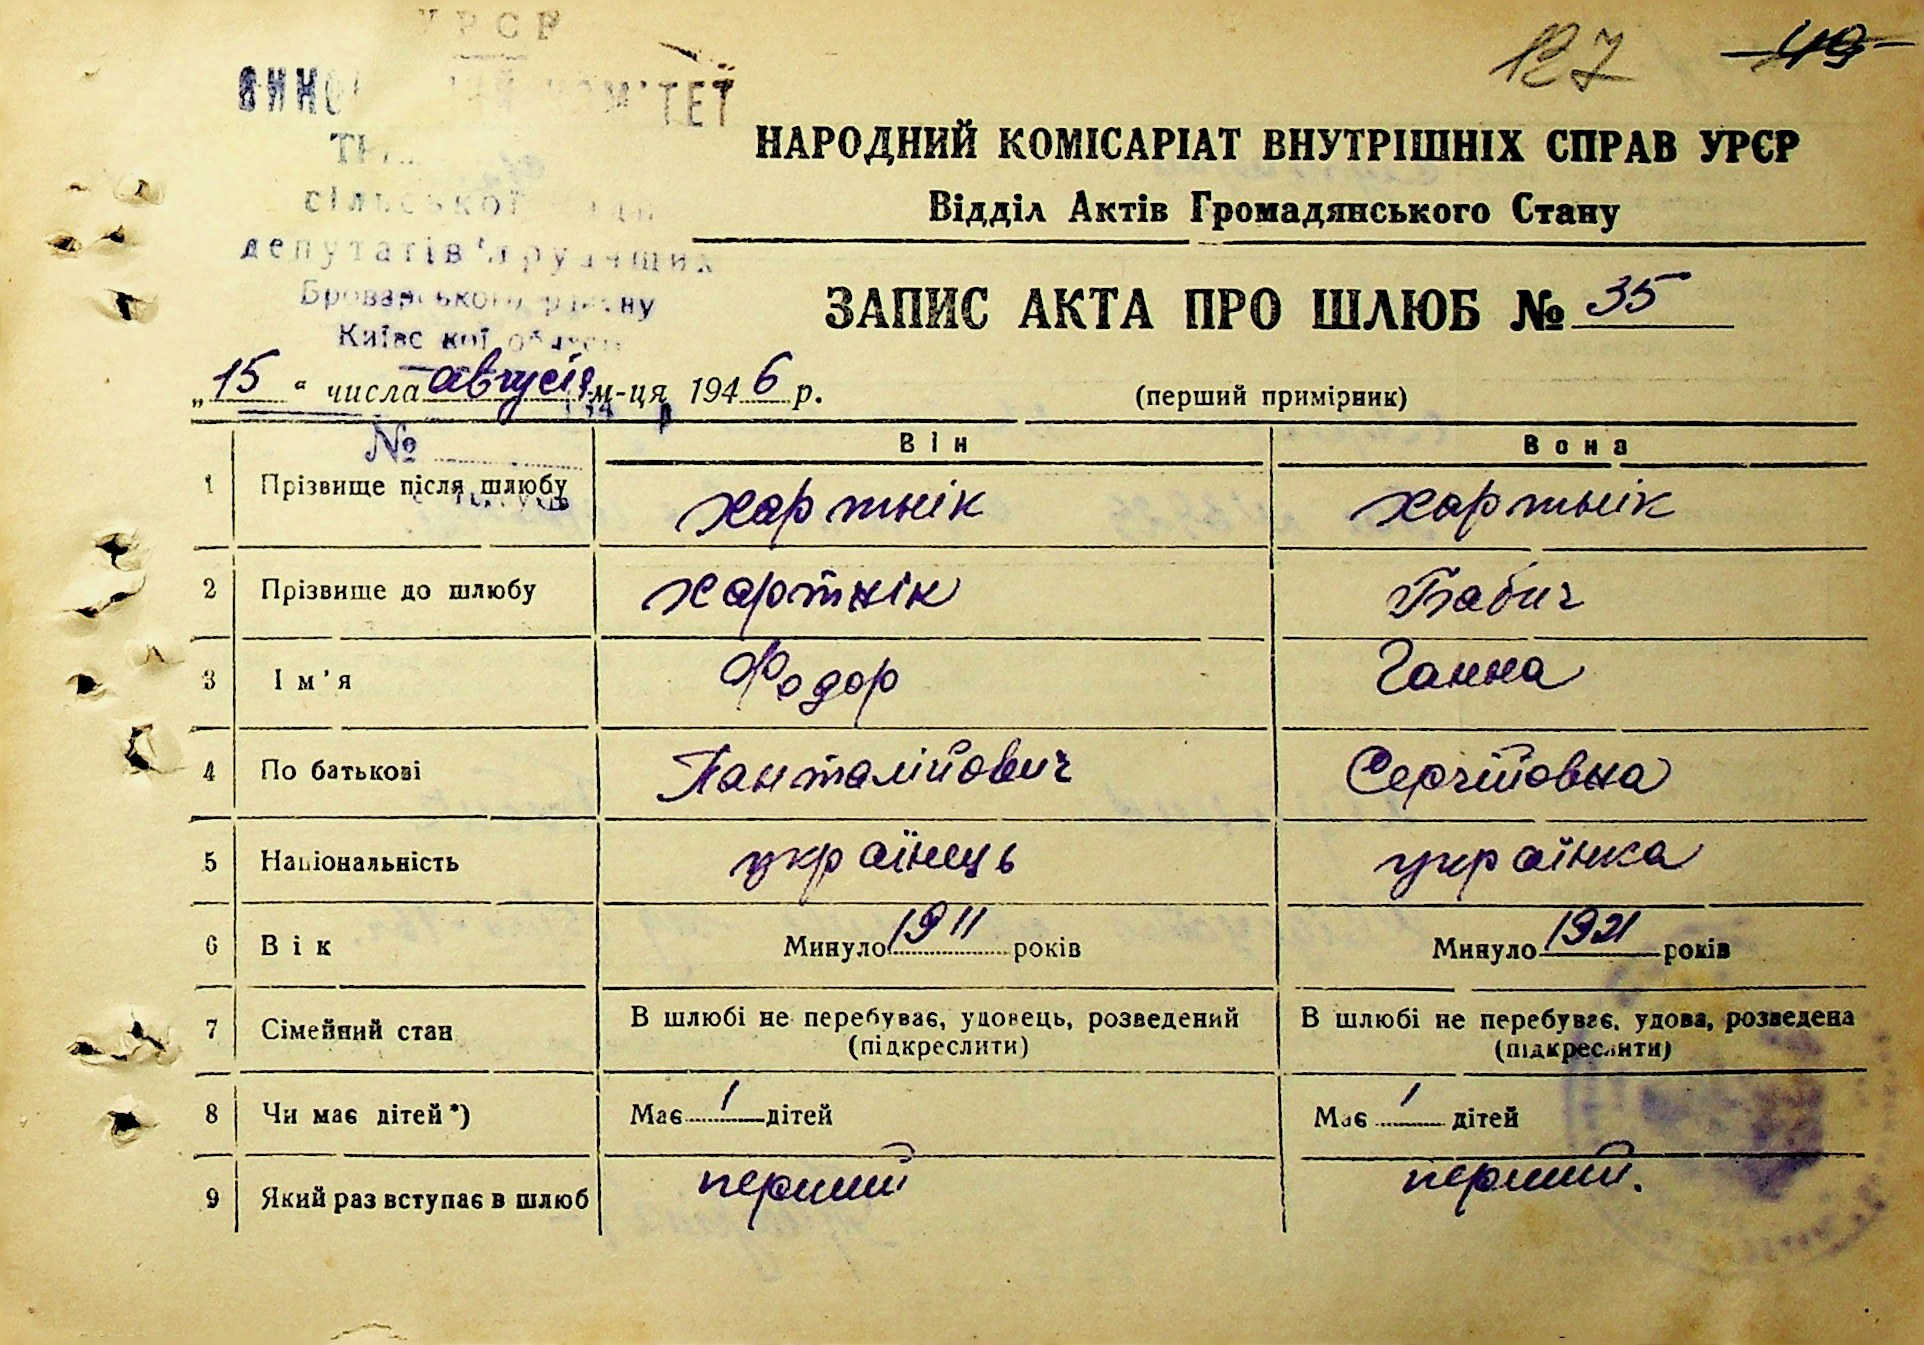 УРСР
127 49
НАРОДНИЙ КОМІСАРІАТ ВНУТРІШНІХ СПРАВ УРСР
Відділ Актів Громадянського Стану
сільської
депутатів трудящих
Броварського району
Київської області
ЗАПИС АКТА ПРО ШЛЮБ № 35
„15“ числа августа м-ця 1946 р.
(перший примірник)
№
Він Вона
1 Прізвище після шлюбу Хартнік Хартнік
2 Прізвище до шлюбу Хартнік Бабич
3 Ім'я Федор Ганна
4 По батькові Панталійович Сергійовна
5 Національність українець українка
6 Вік Минуло 1911 років Минуло 1921 років
7 Сімейний стан В шлюбі не перебуває, удовець, розведений В шлюбі не перебуває, удова, розведена
(підкреслити) (підкреслити)
8 Чи має дітей*) Має 1 дітей Має 1 дітей
9 Який раз вступає в шлюб перший перший.